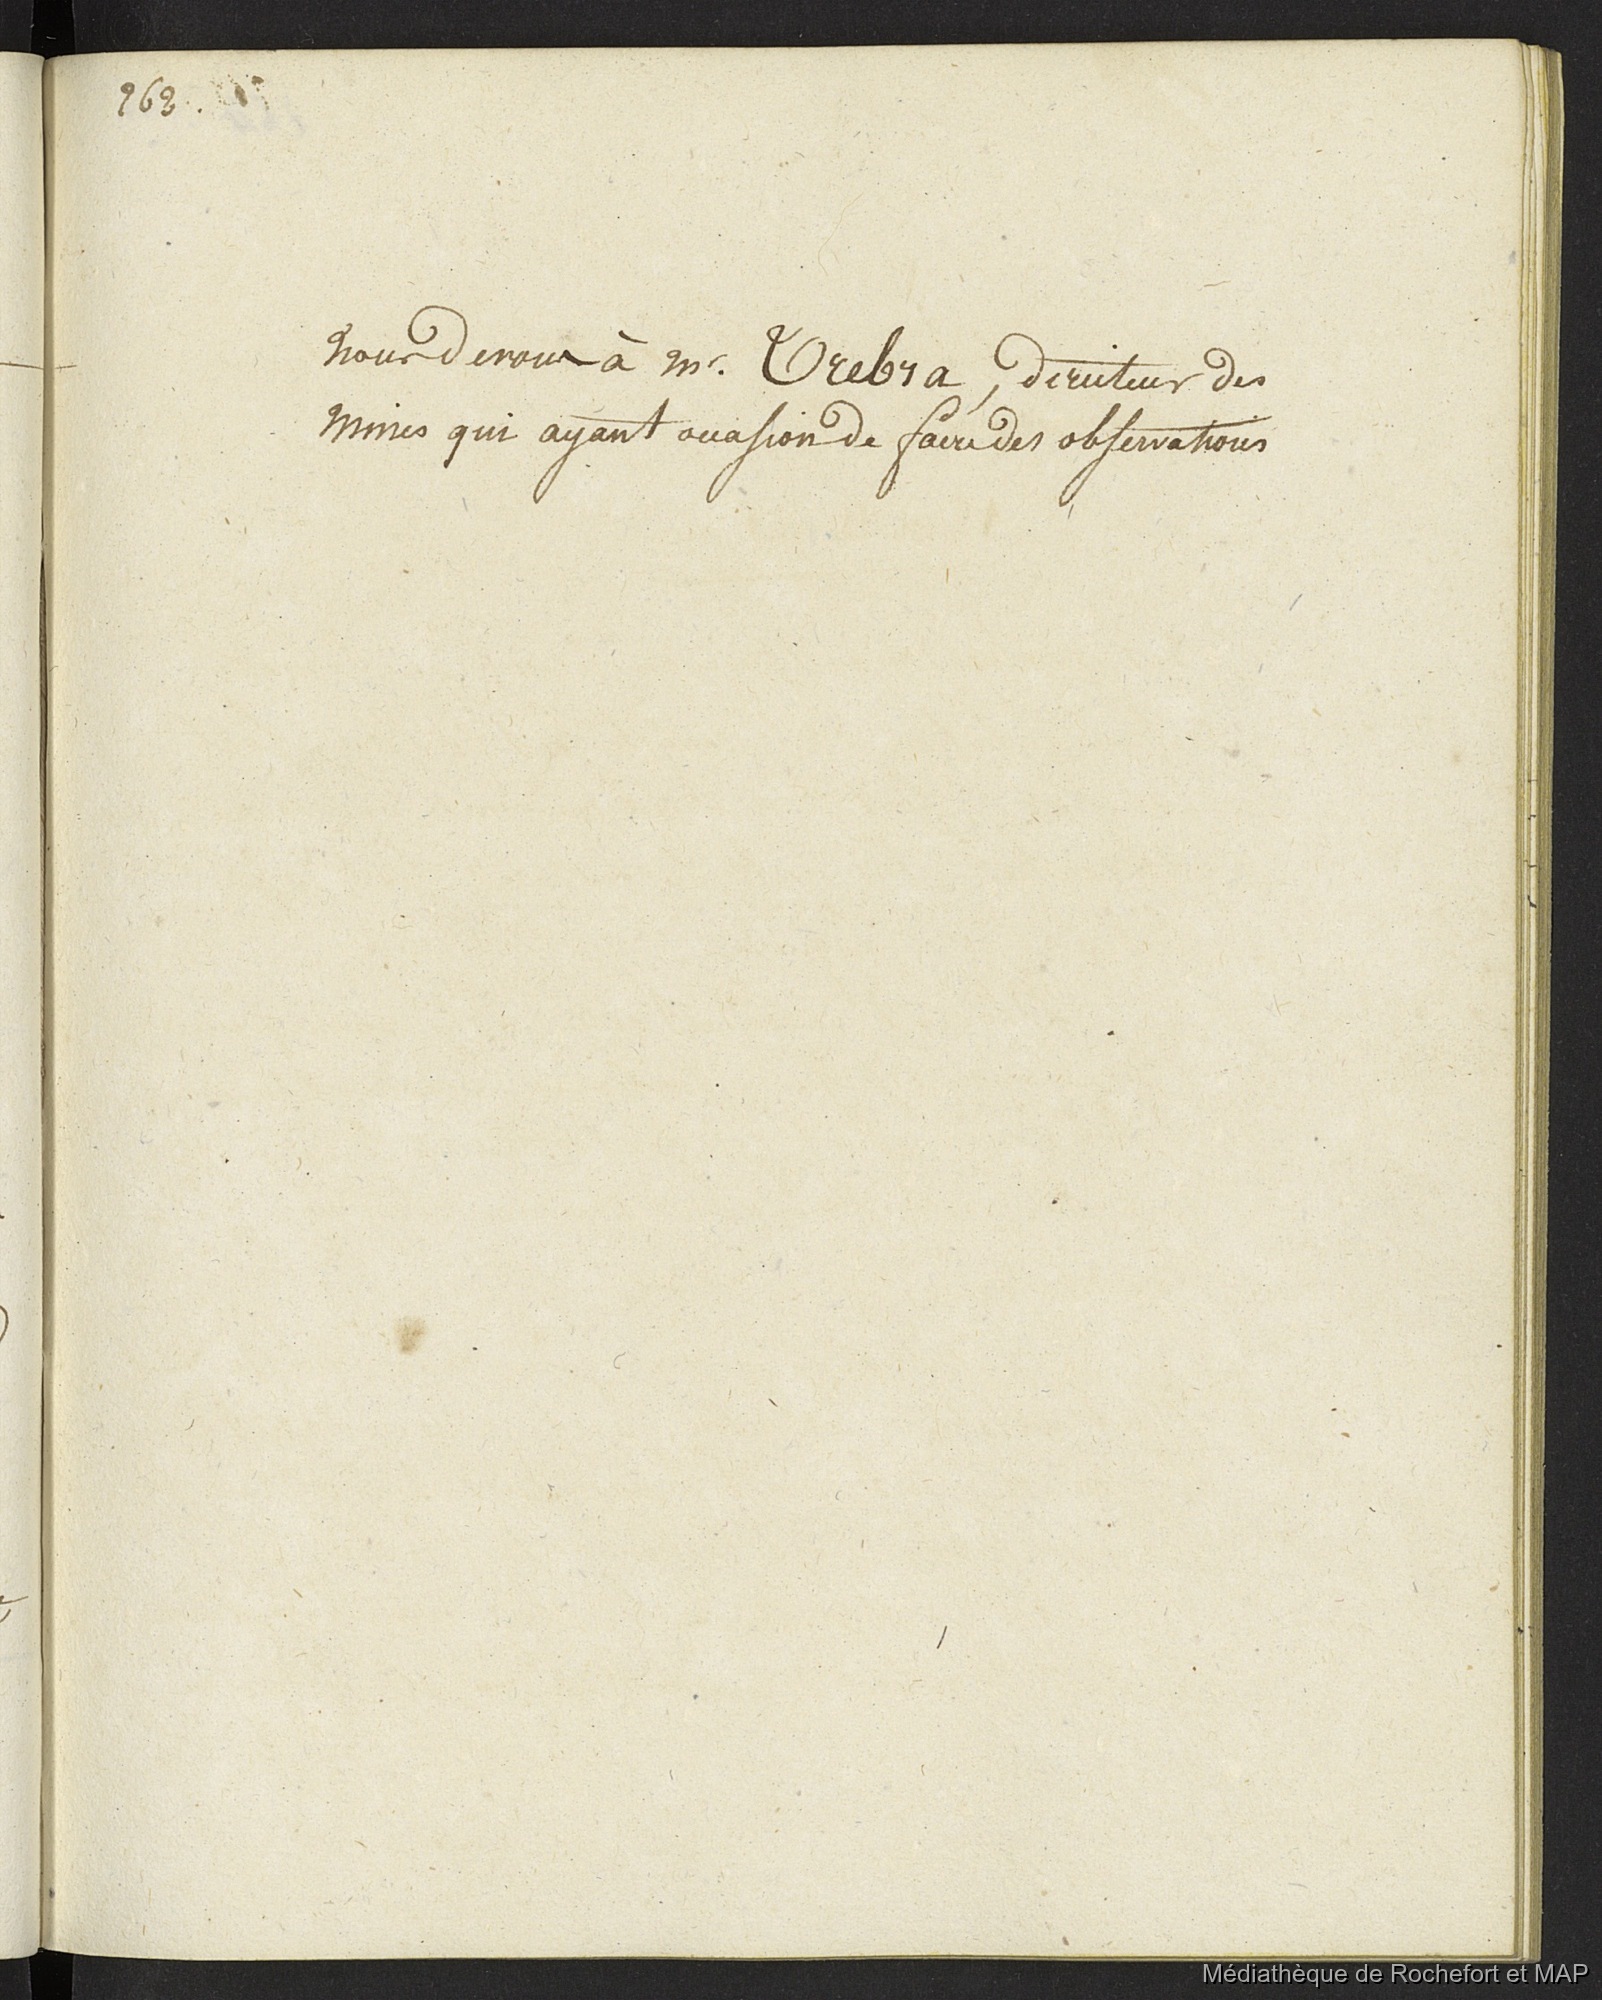 263.
nous devons à mr. Trebra, directeur des
mines qui ayant occasion de faire des observations
Médiathèque de Rochefort et MAP